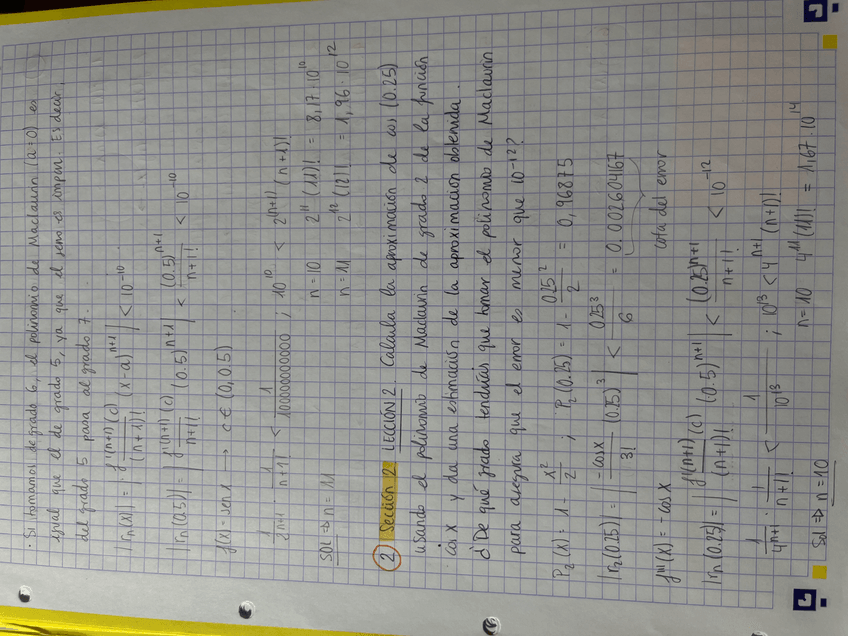 · Si tomamos de grado 6, el polinomio de Maclaurin (a=0) es
igual que el de grado 5, ya que el seno es impar. Es decir,
del grado 5 pasa al grado 7.
|rn(x)| = |f^(n+1)(c) / (n+1)! (x-a)^n+1| < 10^-10
|rn(0,5)| = |f^(n+1)(c) / n+1! (0.5)^n+1| < (0.5)^n+1 / n+1! < 10^-10
f(x) = sen x → c ∈ (0, 0.5)
1/2^n+1 · 1/n+1! < 1/10000000000000 ; 10^10 < 2^(n+1) (n+1)!
n = 10 2^11 (11)! = 8,17·10^10
SOL ⇒ n = 11 n = 11 2^12 (12)! = 1,96·10^12
② Sección 2 LECCIÓN 2. Calcula la aproximación de cos (0.25)
usando el polinomio de Maclaurin de grado 2 de la función
cos x y da una estimación de la aproximación obtenida.
¿De qué grado tendrías que tomar el polinomio de Maclaurin
para asegura que el error es menor que 10^-12?
P2(x) = 1 - x^2/2 ; P2(0.25) = 1 - 0.25^2/2 = 0,96875
|r2(0.25)| = |-cosx/3! (0.25)^3| < 0.25^3/6 = 0.002604167
f'''(x) = -cosx cota del error
|rn(0.25)| = |f^(n+1)(c) / (n+1)! (0.5)^n+1| < (0.25)^n+1 / n+1! < 10^-12
1/4^n+1 · 1/n+1! < 1/10^13 ; 10^13 < 4^n+1 (n+1)!
Sol ⇒ n = 10 n = 10 4^11 (11)! = 1,67·10^14